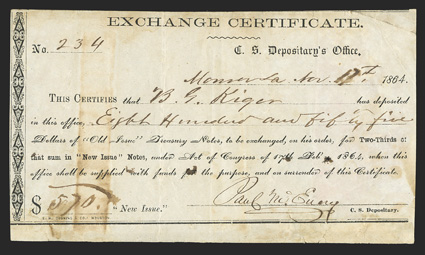 EXCHANGE CERTIFICATE.
No. 234 C. S. Depositary's Office,
Monroe La. Nov. 1864.
THIS CERTIFIES that B. G. Kiger has deposited
in this office, Eight Hundred and fifty five
Dollars of "Old Issue" Treasury Notes, to be exchanged, on his order, for Two-Thirds of
that sum in "New Issue" Notes, under Act of Congress of 17th Feb'y 1864, when this
office shall be supplied with funds for the purpose, and on surrender of this Certificate.
$ 570. "New Issue." C. S. Depositary.